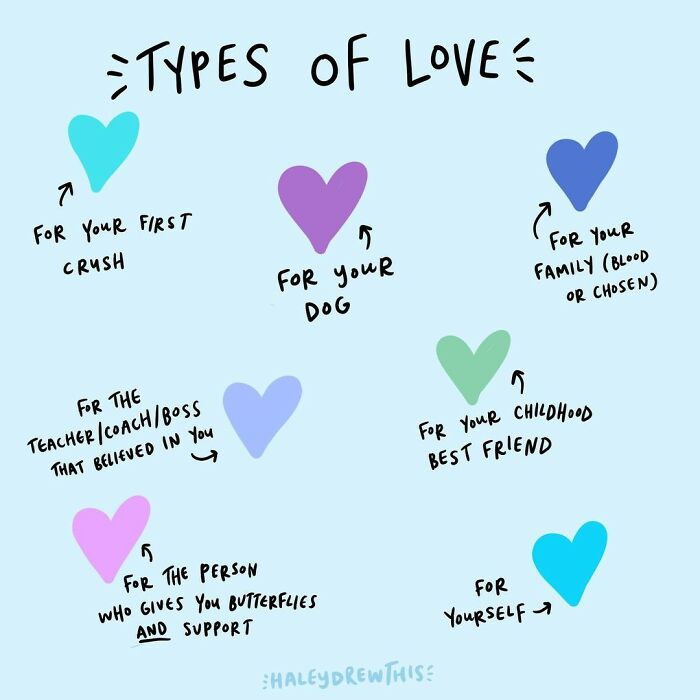 TYPES OF LOVE
FOR YOUR FIRST
CRUSH
FOR YOUR
DOG
FOR YOUR
FAMILY (BLOOD
OR CHOSEN)
FOR THE
TEACHER/COACH/BOSS
THAT BELIEVED IN YOU
FOR YOUR CHILDHOOD
BEST FRIEND
FOR THE PERSON
WHO GIVES YOU BUTTERFLIES
AND SUPPORT
FOR
YOURSELF
HALEYDREWTHIS